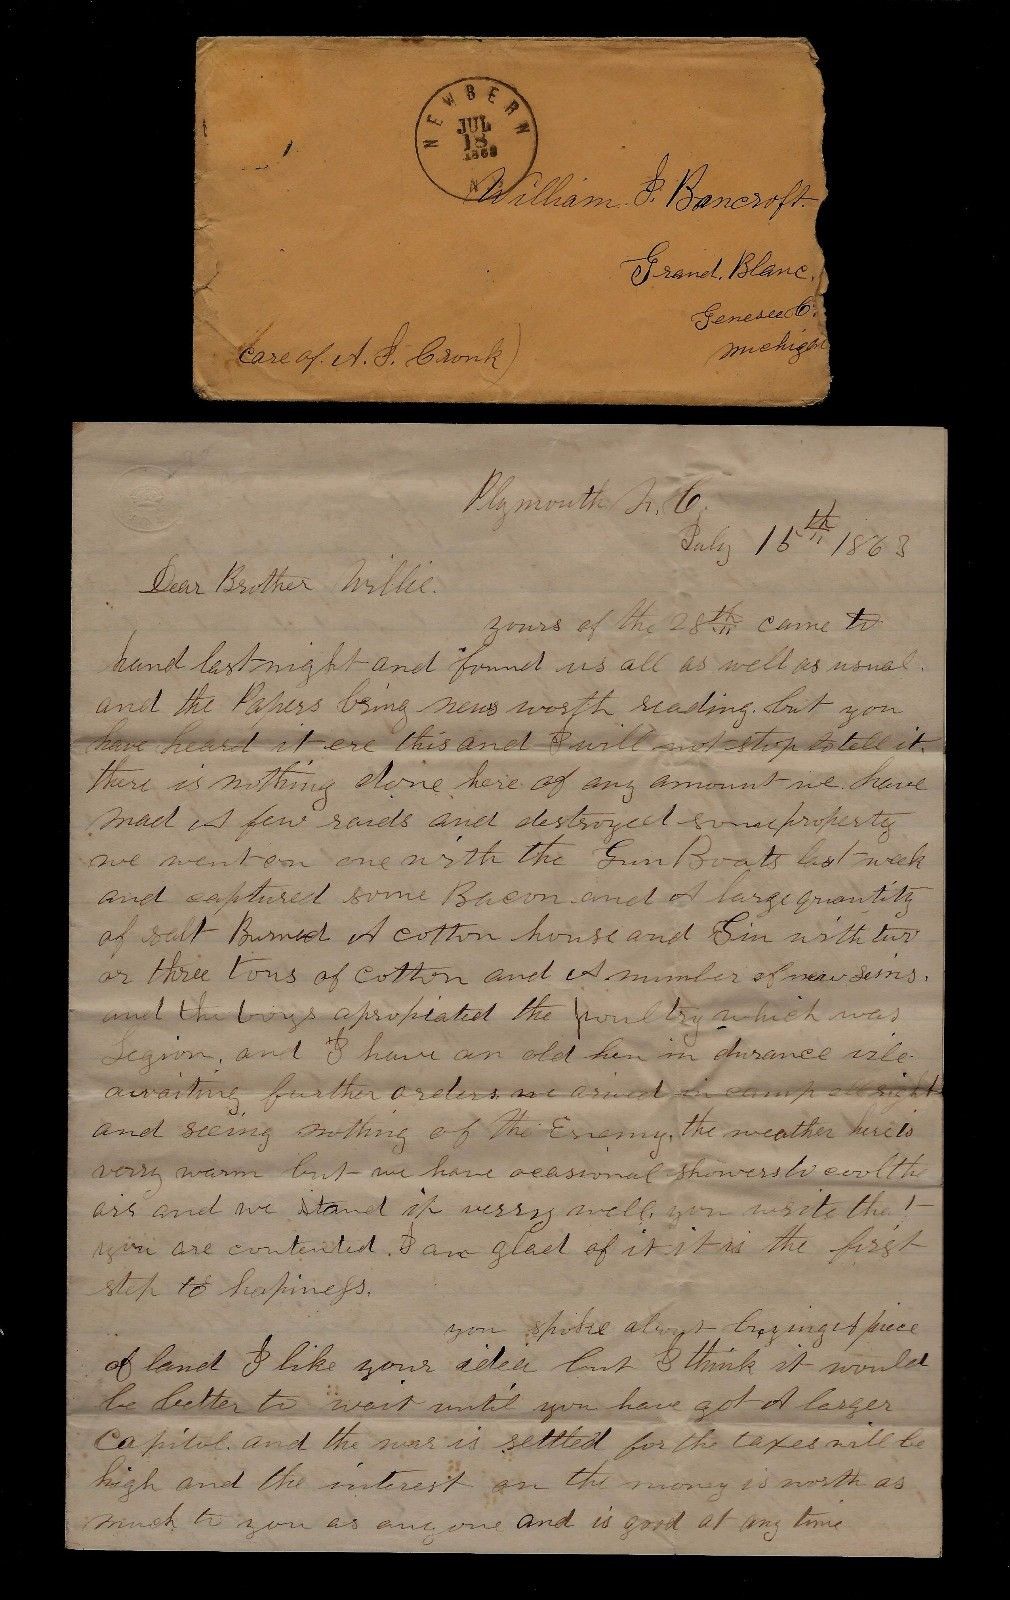 NEWBERN
JUL
18
1863
N.C.
William. J. Bancroft.
Grand. Blanc.
Genesee Co.
Michigan
(care of. A. J. Cronk)
Plymouth N. C.
July 15th 1863
Dear Brother Willie.
yours of the 28th came to
hand last night and found us all as well as usual.
and the Papers bring news worth reading. but you
have heard it ere this and I will not stop to tell it.
there is nothing done here of any amount we have
mad A few raids and destroyed some property
we went on one with the Gun Boats last week
and captured some Bacon and A large quantity
of salt Burned A cotton house and Gin with two
or three tons of cotton and A number of new seins.
and the boys apropiated the poultry which was
Legion. and I have an old hen in durance vile
awaiting further orders we arived in camp all right
and seeing nothing of the Enemy. the weather here is
verry warm but we have ocasional showers to cool the
air and we stand it verry well. you write that
you are contented. I am glad of it it is the first
step to hapiness.
you spoke about buying A piece
of land I like your idea but I think it would
be better to wait until you have got A larger
Capitol. and the war is settled for the taxes will be
high and the interest on the money is worth as
much to you as anyone and is good at any time